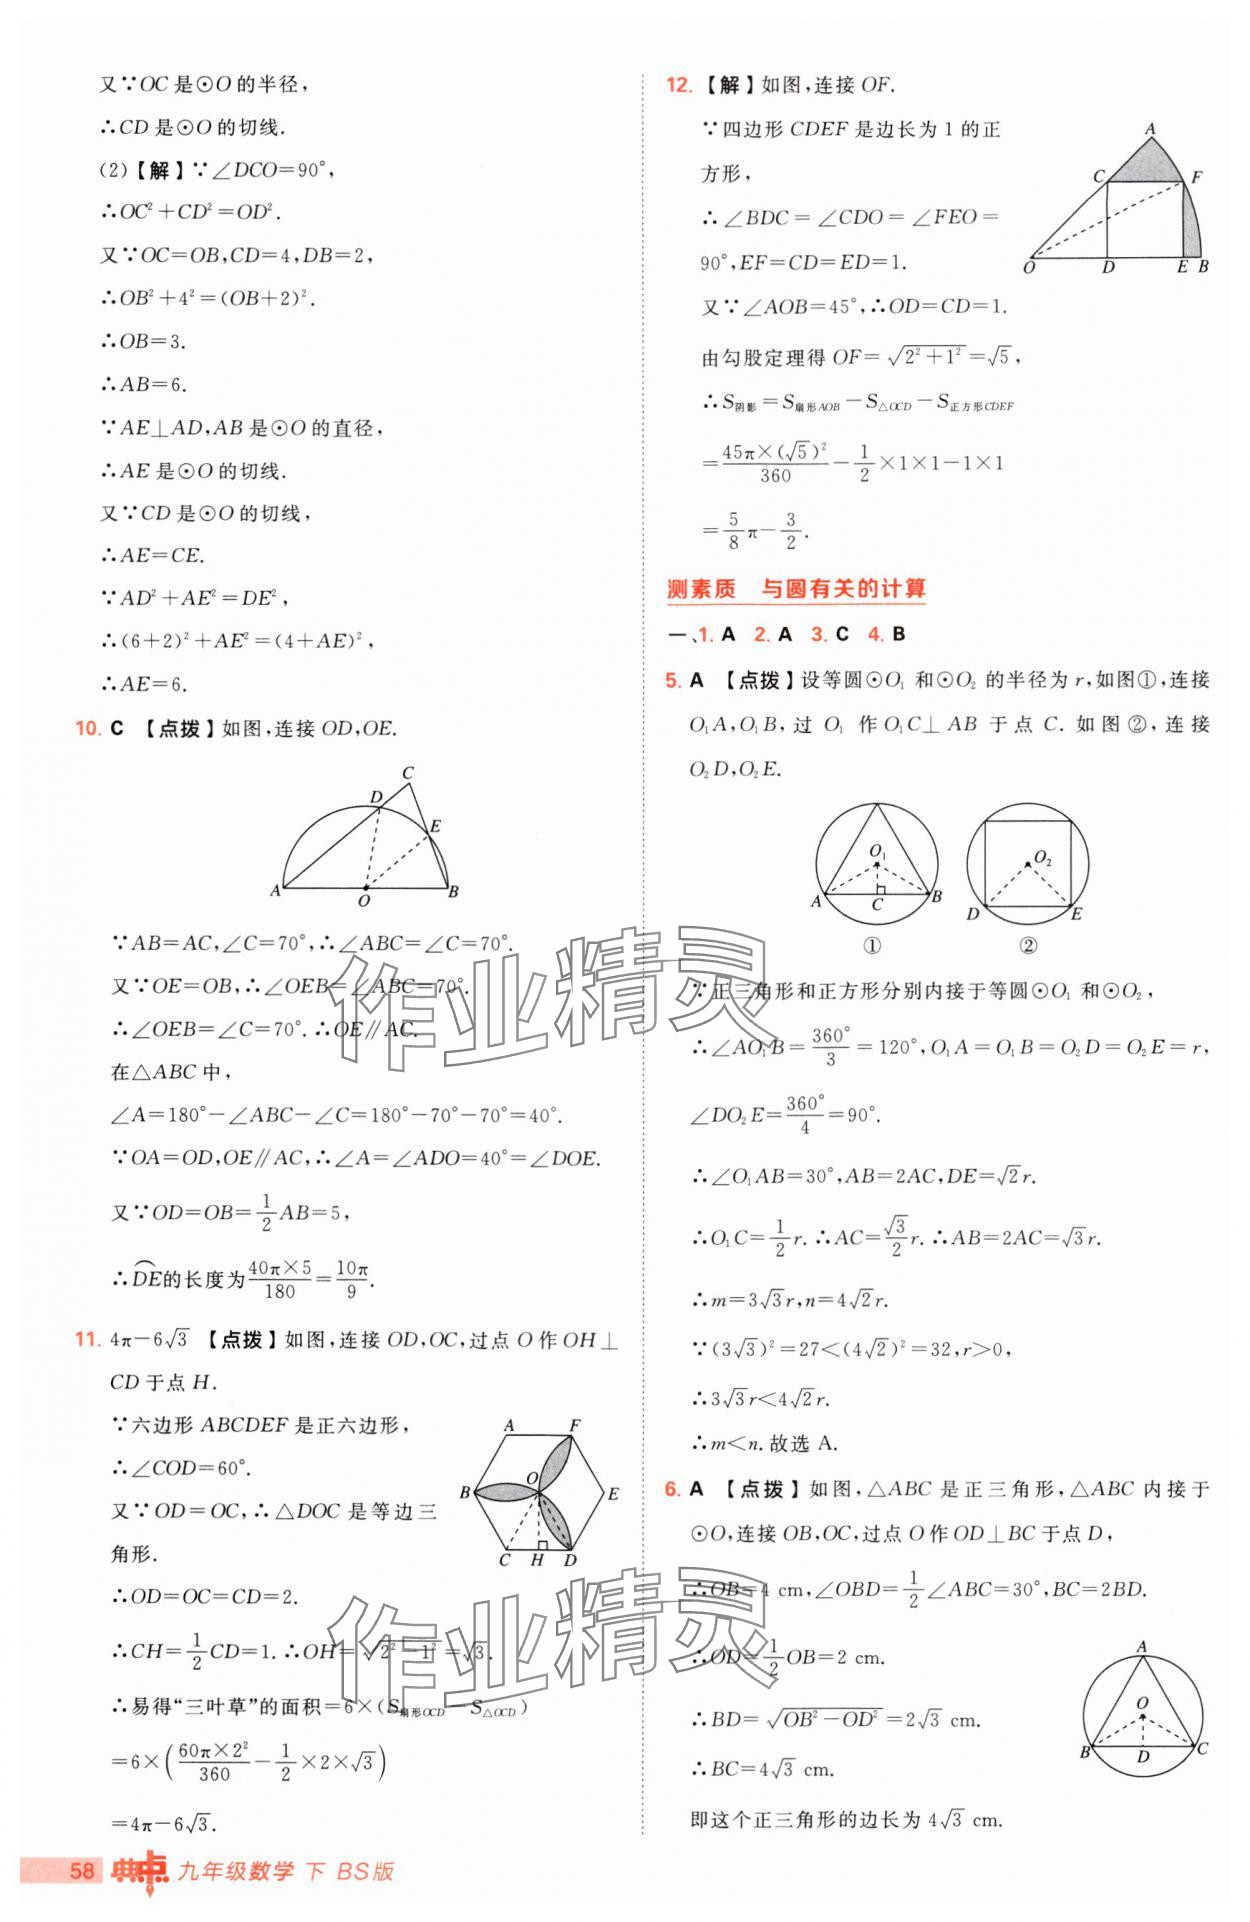 又∵OC是⊙O的半径，
∴CD是⊙O的切线.
(2)【解】∵∠DCO=90°，
∴OC²+CD²=OD².
又∵OC=OB,CD=4,DB=2,
∴OB²+4²=(OB+2)².
∴OB=3.
∴AB=6.
∵AE⊥AD,AB是⊙O的直径，
∴AE是⊙O的切线.
又∵CD是⊙O的切线，
∴AE=CE.
∵AD²+AE²=DE²,
∴(6+2)²+AE²=(4+AE)²,
∴AE=6.
10. C 【点拨】如图,连接OD,OE.
C
D
E
A
O
B
∵AB=AC,∠C=70°,∴∠ABC=∠C=70°.
又∵OE=OB,∴∠OEB=∠ABC=70°.
∴∠OEB=∠C=70°.∴OE∥AC.
在△ABC中，
∠A=180°-∠ABC-∠C=180°-70°-70°=40°.
∵OA=OD,OE∥AC,∴∠A=∠ADO=40°=∠DOE.
又∵OD=OB=1/2AB=5,
∴DE的长度为40π×5/180=10π/9.
11. 4π-6√3 【点拨】如图,连接OD,OC,过点O作OH⊥
CD于点H.
∵六边形ABCDEF是正六边形，
∴∠COD=60°.
又∵OD=OC,∴△DOC是等边三
角形.
A F
O
B E
C H D
∴OD=OC=CD=2.
∴CH=1/2CD=1.∴OH=√(2²-1²)=√3.
∴易得“三叶草”的面积=6×(S扇形OCD-S△OCD)
=6×(60π×2²/360-1/2×2×√3)
=4π-6√3.
58 典中点 九年级数学 下 BS版
12. 【解】如图,连接OF.
∵四边形CDEF是边长为1的正
方形，
∴∠BDC=∠CDO=∠FEO=
90°,EF=CD=ED=1.
又∵∠AOB=45°,∴OD=CD=1.
A
C F
O D E B
由勾股定理得OF=√(2²+1²)=√5,
∴S阴影=S扇形AOB-S△OCD-S正方形CDEF
=45π×(√5)²/360-1/2×1×1-1×1
=5/8π-3/2.
测素质 与圆有关的计算
一、1. A 2. A 3. C 4. B
5. A 【点拨】设等圆⊙O₁和⊙O₂的半径为r,如图①,连接
O₁A,O₁B,过O₁作O₁C⊥AB于点C.如图②,连接
O₂D,O₂E.
O₁
A C B
①
O₂
D E
②
∵正三角形和正方形分别内接于等圆⊙O₁和⊙O₂,
∴∠AO₁B=360°/3=120°,O₁A=O₁B=O₂D=O₂E=r,
∠DO₂E=360°/4=90°.
∴∠O₁AB=30°,AB=2AC,DE=√2r.
∴O₁C=1/2r.∴AC=√3/2r.∴AB=2AC=√3r.
∴m=3√3r,n=4√2r.
∵(3√3)²=27<(4√2)²=32,r>0,
∴3√3r<4√2r.
∴m<n.故选A.
6. A 【点拨】如图,△ABC是正三角形,△ABC内接于
⊙O,连接OB,OC,过点O作OD⊥BC于点D,
∴OB=4 cm,∠OBD=1/2∠ABC=30°,BC=2BD.
∴OD=1/2OB=2 cm.
∴BD=√(OB²-OD²)=2√3 cm.
∴BC=4√3 cm.
A
O
B D C
即这个正三角形的边长为4√3 cm.
作业精灵
作业精灵